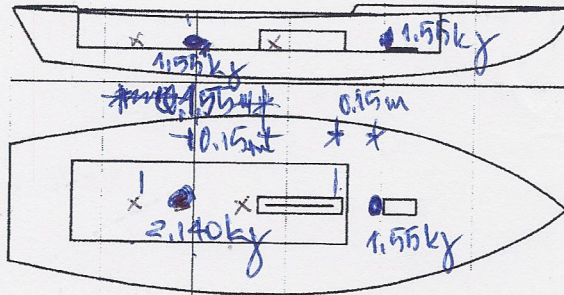 1.55kg
1.55kg
0.15m
0.15m
2.140kg
1.55kg